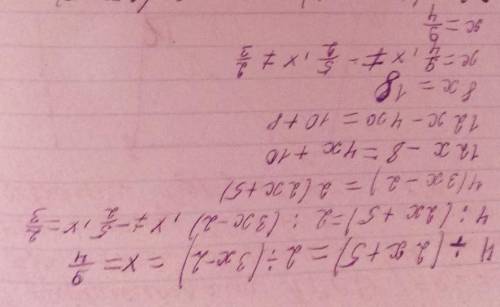 4 ÷ (2x+5) = 2 ÷ (3x-2) = x = 9/4
4 ÷ (2x+5) = 2 ÷ (3x-2), x ≠ -5/2, x = 2/3
4(3x-2) = 2(2x+5)
12x - 8 = 4x + 10
12x - 4x = 10 + 8
8x = 18
x = 9/4, x ≠ -5/2, x ≠ 2/3
x = 9/4